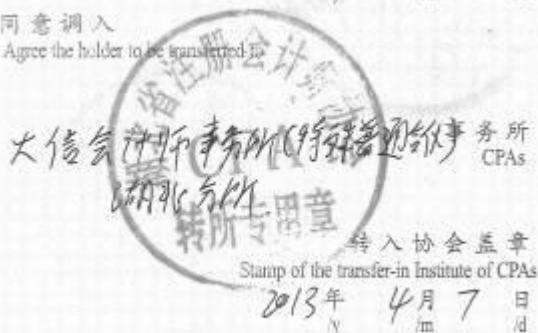 同意调入
Agree the holder to be transferred to
大信会计师事务所(特殊普通合伙)事务所
CPAs
湖北分所
省注册会计师协
CPA
转所专用章
转入协会盖章
Stamp of the transfer-in Institute of CPAs
2013年 4月 7日
/y /m /d